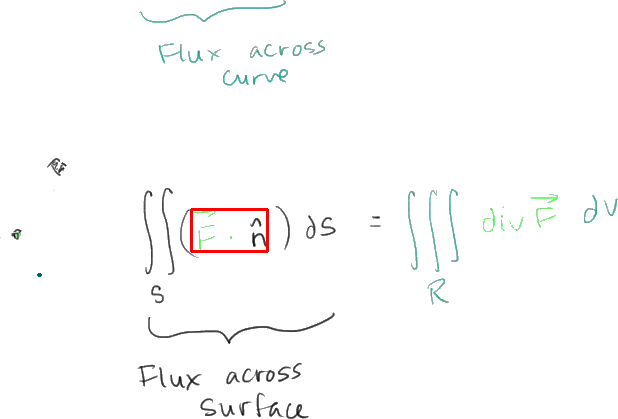 Flux across
curve
∬_S (F⃗ · n̂) dS = ∭_R div F⃗ dV
Flux across
surface